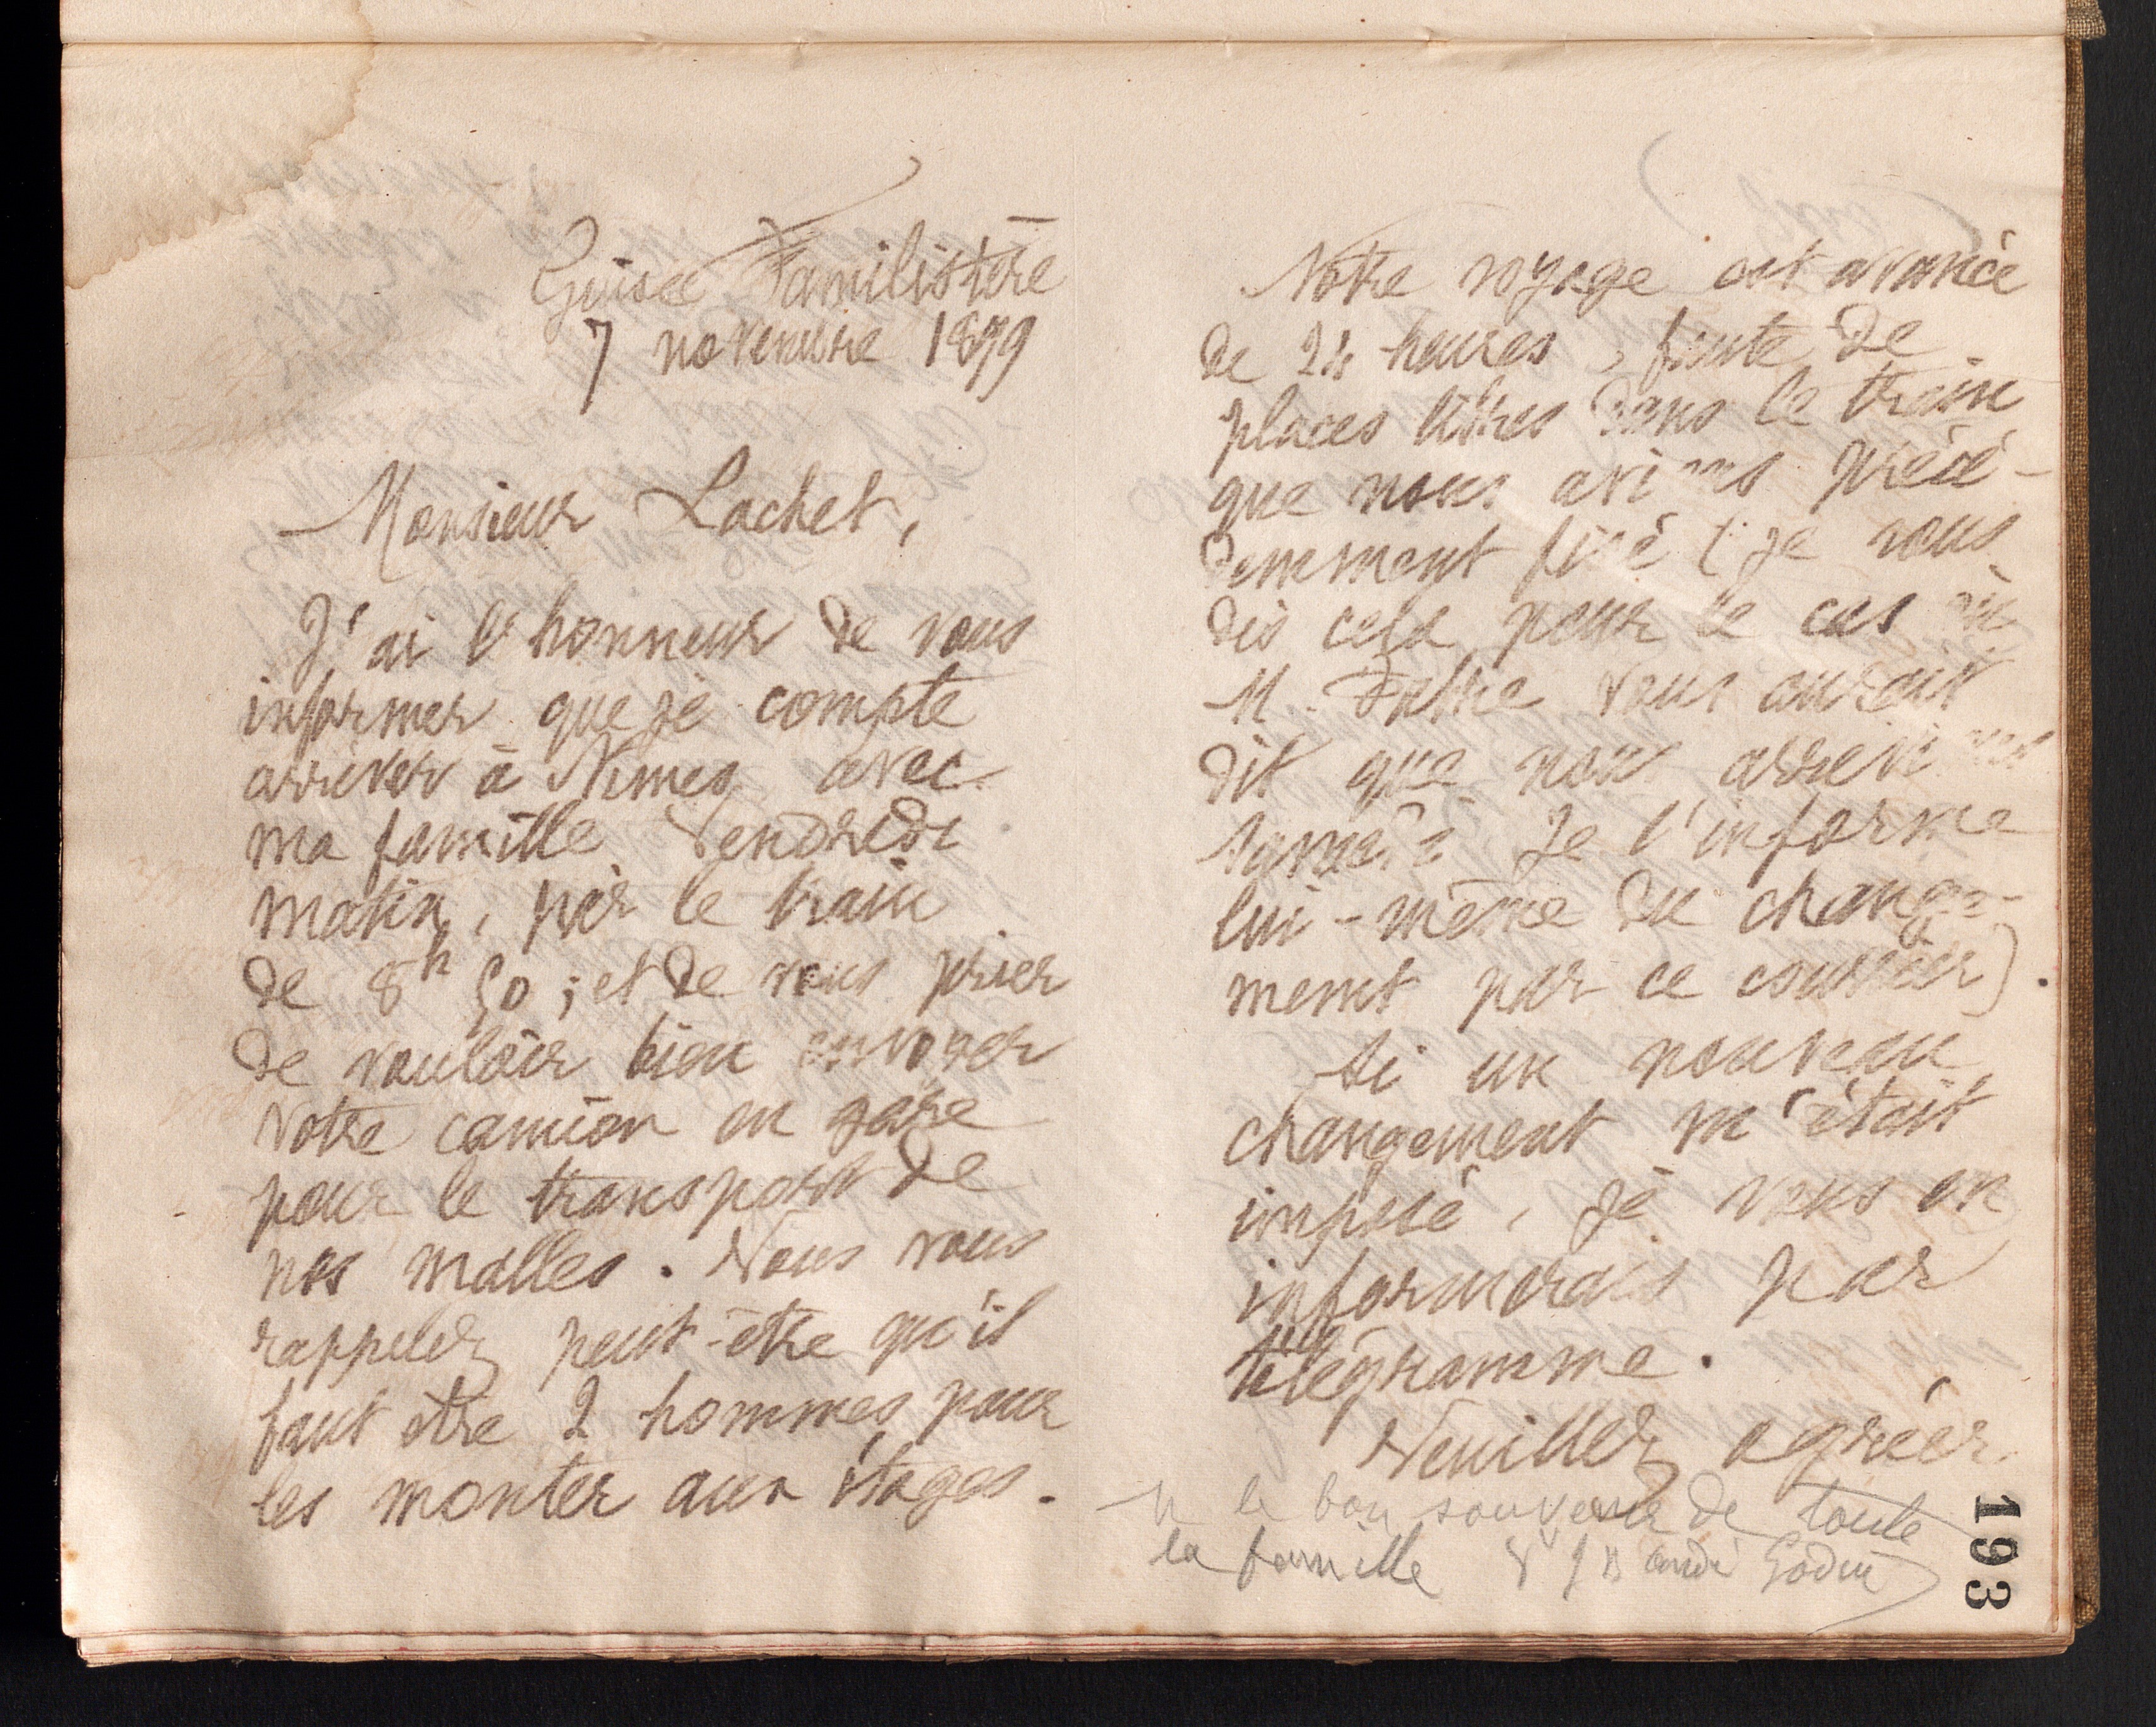 Guise Familistère
7 novembre 1899
Monsieur Lachet,
J'ai l'honneur de vous
informer que je compte
arriver à Nimes avec
ma famille Vendredi
matin, par le train
de 8h 50 ; et de vous prier
de vouloir bien envoyer
votre camion en gare
pour le transport de
nos malles. Vous vous
rappelez peut-être qu'il
faut être 2 hommes pour
les monter aux étages.
Notre voyage est avancé
de 24 heures, faute de
places libres dans le train
que nous avions précé-
demment fixé (je vous
dis cela pour le cas où
M. Fabre vous aurait
dit que nous arrivions
samedi Je l'informe
lui-même du change-
ment par ce courrier).
Si un nouveau
changement m'était
imposé, je vous en
informerais par
télégramme.
Veuillez agréer
le bon souvenir de toute
la famille Godin
193